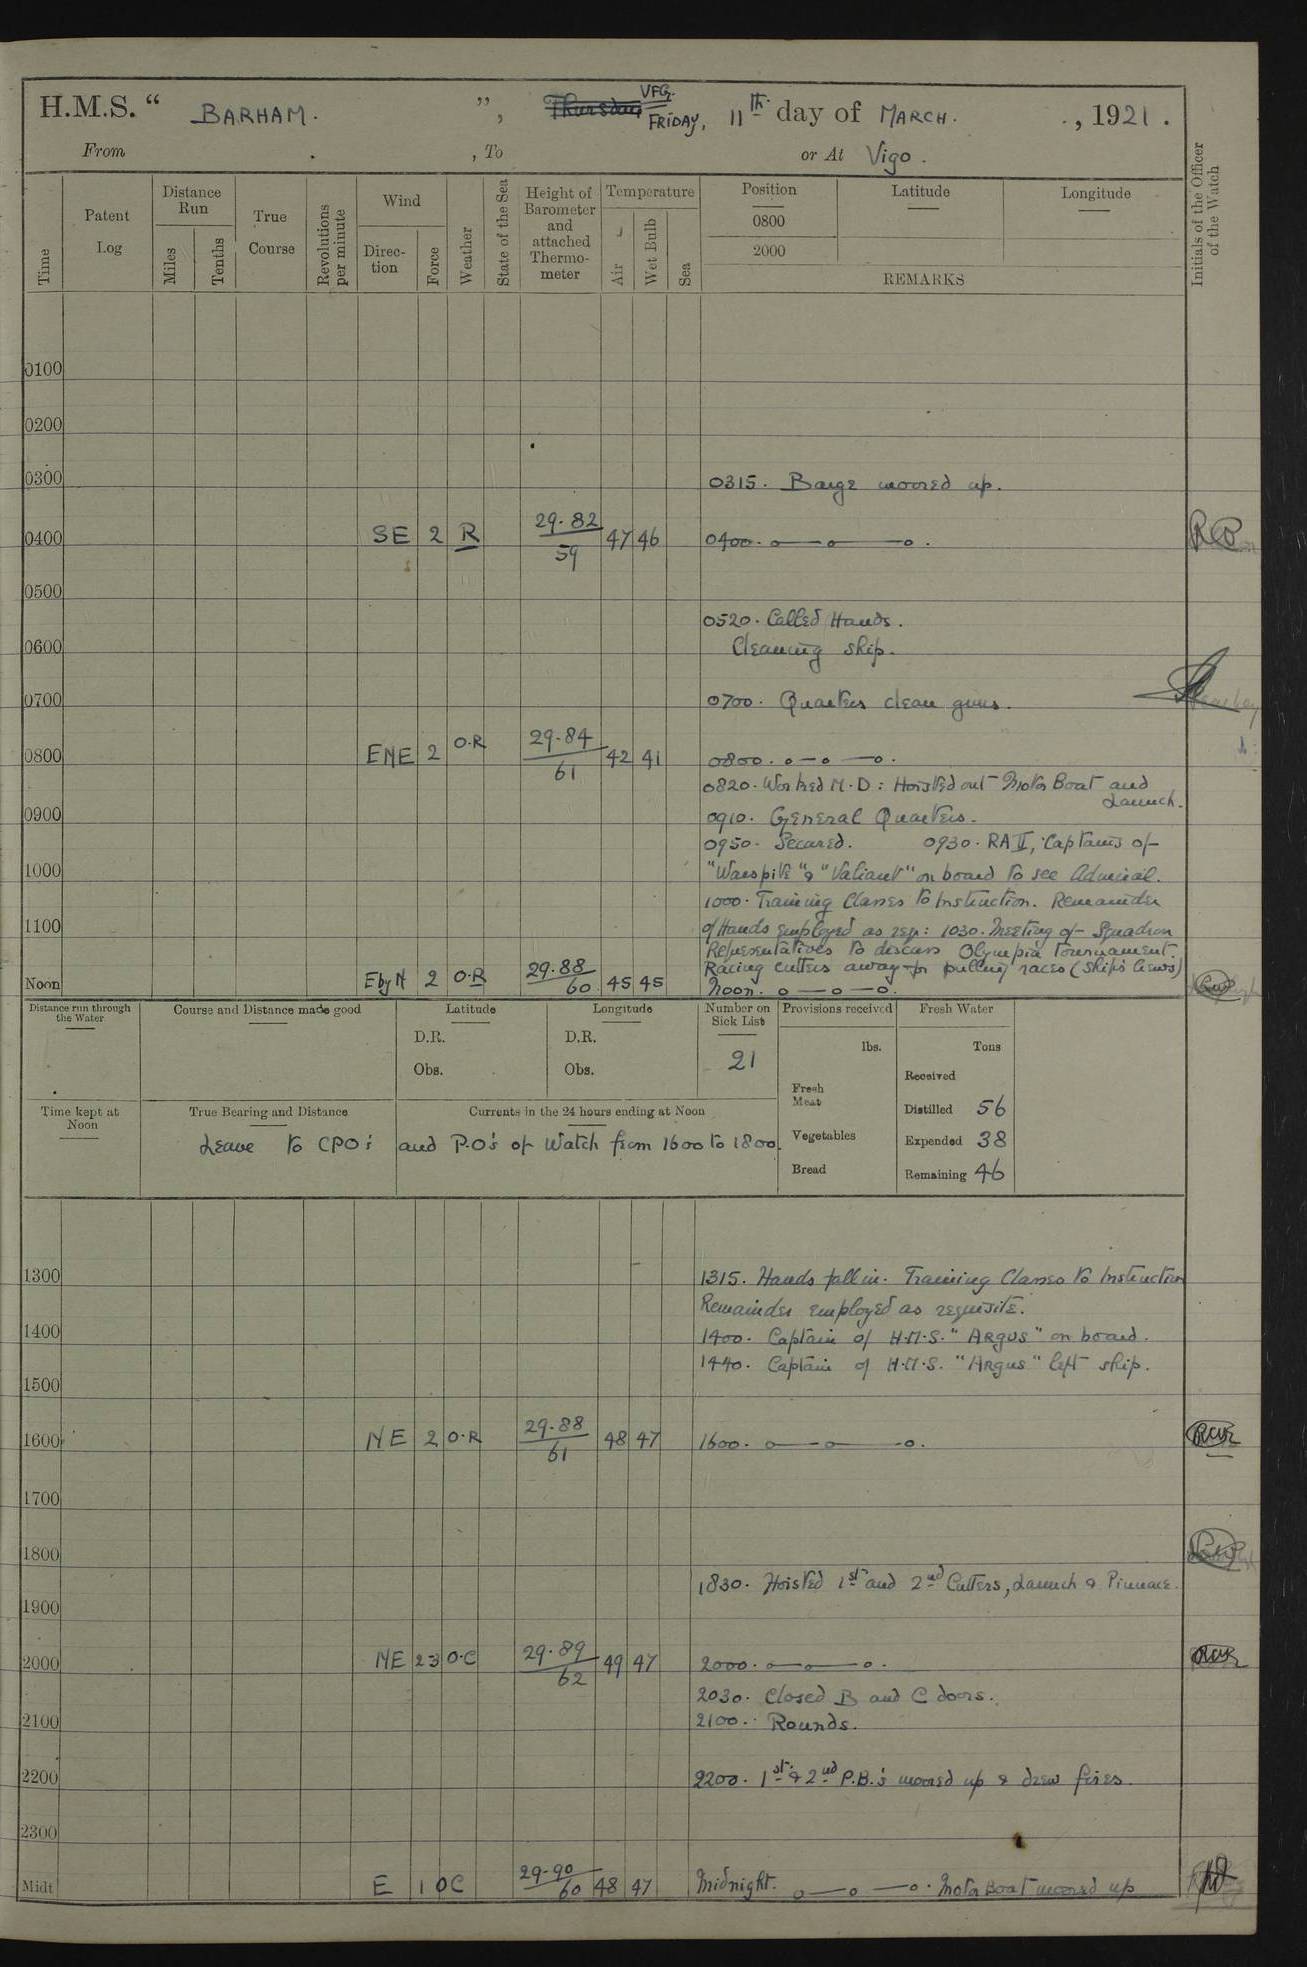 H.M.S. “ BARHAM. ”, Thursday VFG. FRIDAY, 11th day of MARCH. , 1921.
From , To or At Vigo.
Time
Patent Log
Distance Run
Miles
Tenths
True Course
Revolutions per minute
Wind
Direction
Force
Weather
State of the Sea
Height of Barometer and attached Thermometer
Temperature
Air
Wet Bulb
Sea
Position
0800
2000
Latitude
Longitude
REMARKS
Initials of the Officer of the Watch
0100
0200
0300 0315. Barge moored up.
0400 SE 2 R 29.82 59 47 46 0400.
0500
0520. Called Hands.
0600 Cleaning ship.
0700 0700. Quarters clean guns.
0800 ENE 2 O.R 29.84 61 42 41 0800.
0820. Worked M.D: Hoisted out Motor Boat and Launch.
0900 0910. General Quarters.
0950. Secured. 0930. RA II, Captains of
1000 "Warspite" & "Valiant" on board to see Admiral.
1000. Training Classes to Instruction. Remainder
1100 of Hands employed as req: 1030. Meeting of Squadron
Representatives to discuss Olympia Tournament.
Racing cutters away for pulling races (Ship's Crews)
Noon E by N 2 O.R 29.88 60 45 45 Noon.
Distance run through the Water
Course and Distance made good
Latitude
D.R.
Obs.
Longitude
D.R.
Obs.
Number on Sick List
21
Provisions received
lbs.
Fresh Meat
Vegetables
Bread
Fresh Water
Tons
Received
Distilled 56
Expended 38
Remaining 46
Time kept at Noon
True Bearing and Distance
Currents in the 24 hours ending at Noon
Leave to CPO's and P.O's of Watch from 1600 to 1800.
1300 1315. Hands fall in. Training Classes to Instruction
Remainder employed as requisite.
1400 1400. Captain of H.M.S. "Argus" on board.
1440. Captain of H.M.S. "Argus" left ship.
1500
1600 NE 2 O.R 29.88 61 48 47 1600.
1700
1800
1830. Hoisted 1st and 2nd Cutters, Launch & Pinnace.
1900
2000 NE 23 O.C 29.89 62 49 47 2000.
2030. Closed B and C doors.
2100 2100. Rounds.
2200 2200. 1st & 2nd P.B.'s moored up & drew fires.
2300
Midt E 1 OC 29.90 60 48 47 Midnight. Motor Boat moored up